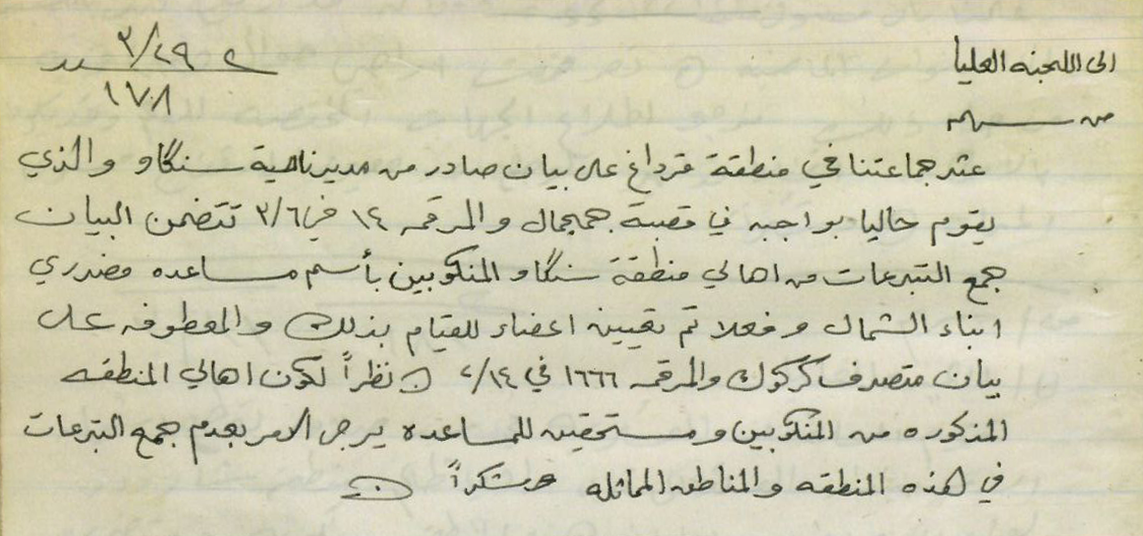 الى اللجنه العليا
عدد ٢ ٣/٢٩
١٧٠٨
من
عثر جماعتنا في منطقة قرداغ على بيان صادر من مدير ناحية سنگاو والذي
يقوم حاليا بواجبه في قصبة جمجمال والمرقمه ١٤ في ٣/٦ تتضمن البيان
جمع التبرعات من اهالي منطقة سنگاو المنكوبين بأسم مساعده متضرري
ابناء الشمال وفعلا تم تعيين اعضاء للقيام بذلك والمعطوفه على
بيان متصرف كركوك والمرقمه ١٦٦٦ في ٢/١٤ نظراً لكون اهالي المنطقه
المذكوره من المنكوبين ومستحقين للمساعده يرجى الامر بعدم جمع التبرعات
في هذه المنطقه والمناطق المماثله وشكراً